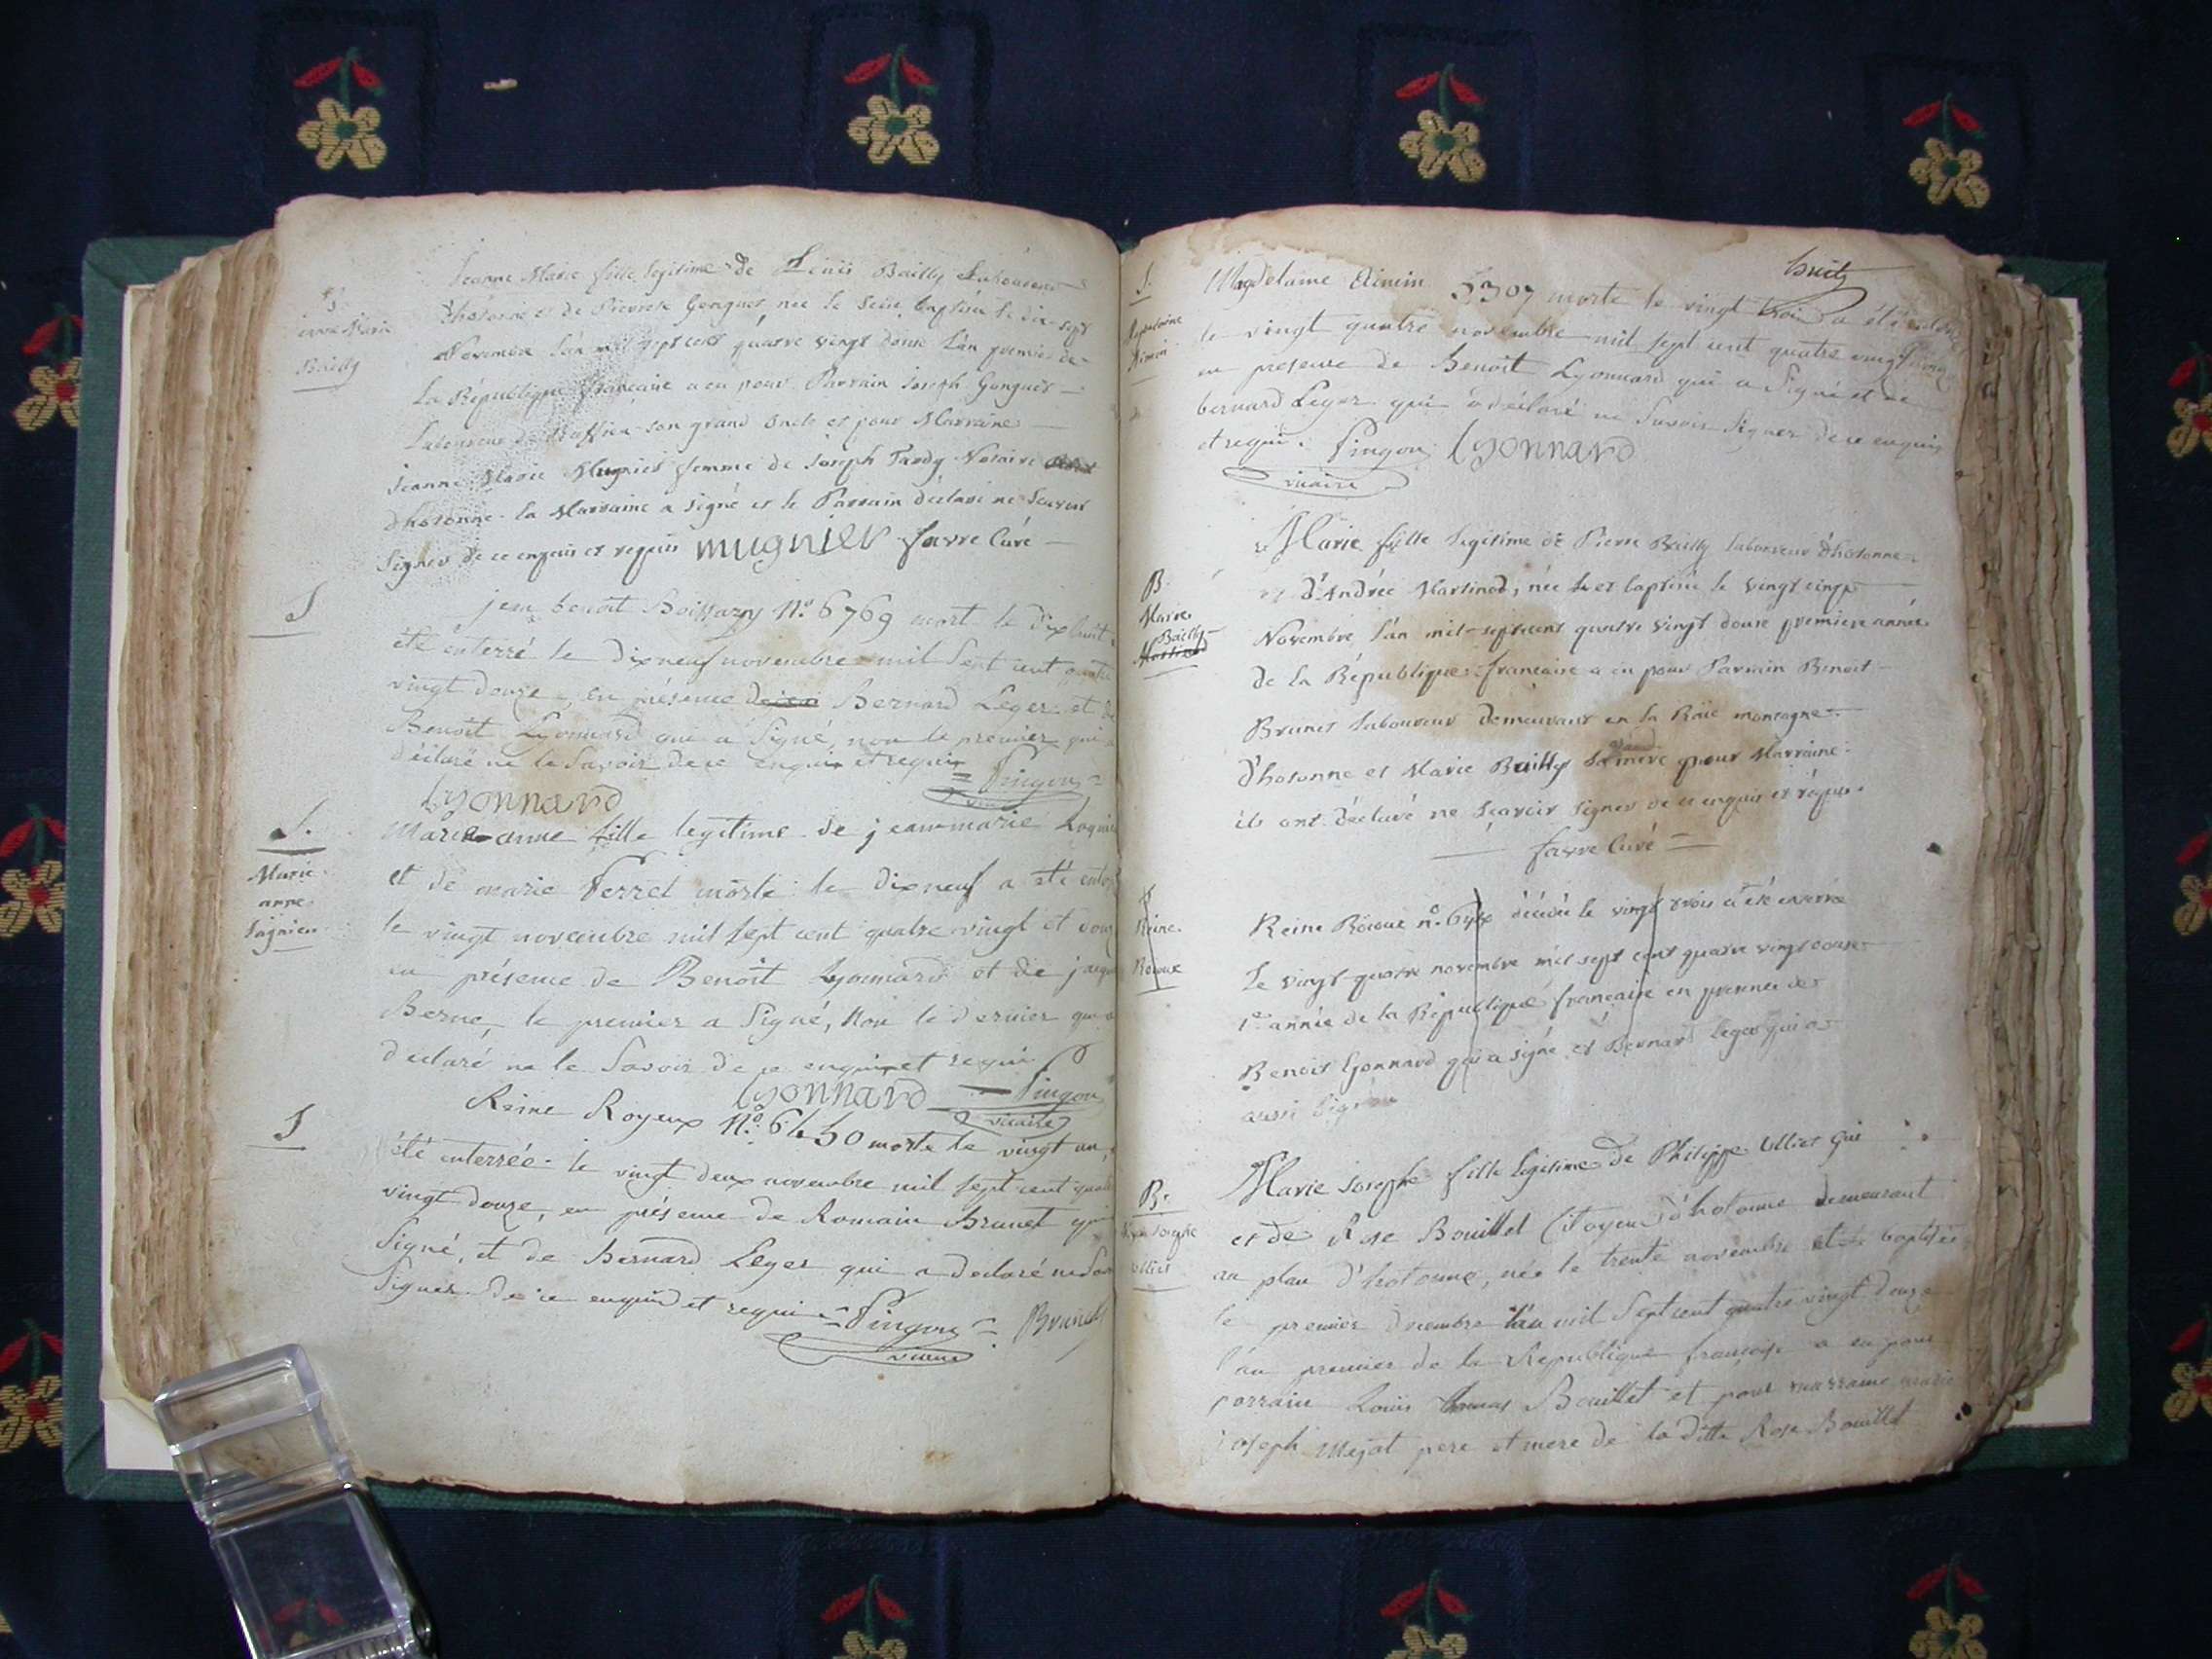 Jeanne Marie fille legitime de Bailly Laboureur
d'hotonne et de Pierrete Gonguet, née le seize baptisée le dix-sept
Novembre l'an mil sept cent quatre vingt douze l'an premier de
La République française a eu pour Parrain Joseph Gongues
Laboureur de Ruffieu son grand oncle et pour Marraine
B.
jeanne Marie
Bailly
Jeanne Marie Mugnier femme de Joseph Tardy Notaire
d'hotonne. la Marraine a signé et le Parrain déclaré ne Scavoir
Signer de ce enquis et requis mugnier favre Curé
S
jean benoit Boissazy N.º 6769 mort le dixhuit
été enterré le dixneuf novembre mil sept cent quatre
vingt douze, en présence de Bernard Leger et de
Benoit Lyonnard qui a signé, non le premier qui a
déclaré ne le savoir de ce enquis et requis = Pingon =
Lyonnard
S.
Marie
anne
marie-anne fille legitime de jeanmarie
et de marie Perret morte le dixneuf a été
le vingt novembre mil sept cent quatre vingt et
en présence de Benoit Lyonnard et de
Berne, le premier a signé, non le dernier qui a
déclaré ne le savoir de ce enquis et requis
Lyonnard = Pingon
vicaire
S
Reine Royeux N.º 6450 morte le vingt un,
été enterrée le vingt deux novembre mil sept cent quatre
vingt douze, en présence de Romain Brunet qui
signé, et de bernard Leger qui a declaré ne
signer de ce enquis et requis = Pingon = Brunet
vicaire
huit
S.
Magdelaine
Magdelaine 5307 morte le vingt trois a été
le vingt quatre novembre mil sept cent quatre vingt
en presence de Benoit Lyonnard qui a signé et de
bernard Leger qui a déclaré ne savoir signer de ce enquis
et requis. Pingon Lyonnard
vicaire
B.
Marie
Bailly
Martinod
Marie fille legitime de Pierre Bailly laboureur d'hotonne
et d'Andrée Martinod, née et baptisée le vingt cinq
Novembre l'an mil-sept cent quatre vingt douze premiere année
de la République francaise a eu pour Parrain Benoit
Brunet laboureur demeurant en la montagne
grand
d'hotonne et Marie Bailly sa mère pour Marraine
ils ont déclaré ne scavoir signer de ce enquis et requis
favre Curé
S
Reine
Royeux
Reine Royeux n.º décédée le vingt trois a été enterrée
Le vingt-quatre novembre mil sept cent quatre vingt douze
1e année de la République francaise en presence de
Benoit Lyonnard qui a signé et Bernard Leger qui a
aussi signé
B.
Marie Josephe
Ulliet
Marie Josephe fille legitime de Philippe Ulliet
et de Rose Bouillet Citoyens d'hotonne demeurant
au plan d'hotonne, née le trente novembre et baptisée
le premier decembre l'an mil sept cent quatre vingt douze
l'an premier de la République françoise a eu pour
parrain Louis Bouillet et pour marraine marie
joseph Mejat pere et mere de la ditte Rose Bouillet